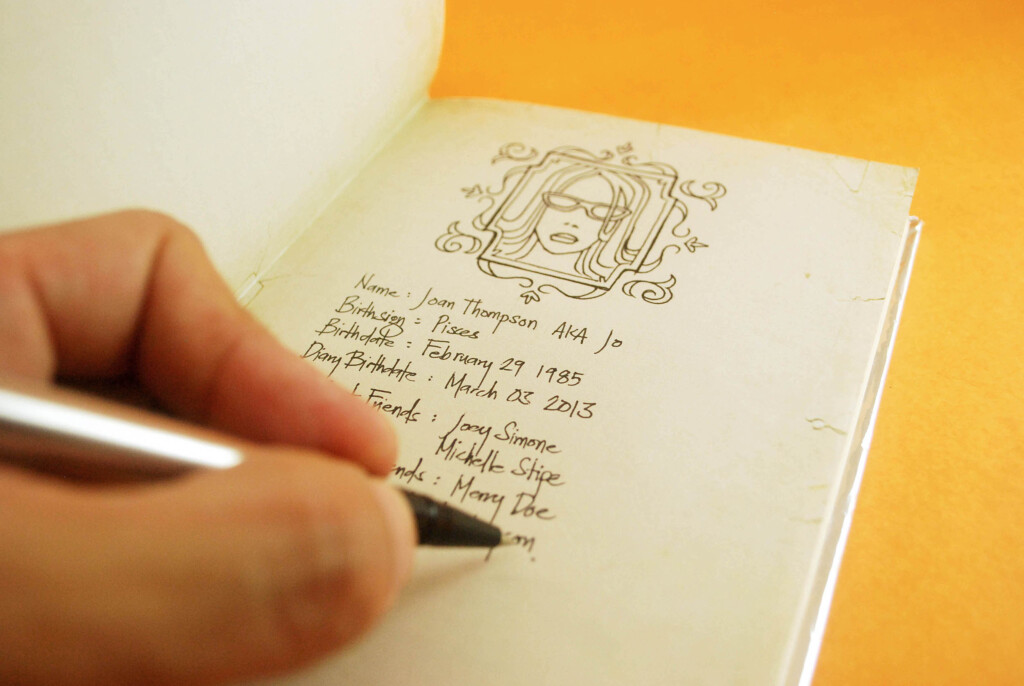 Name : Joan Thompson AKA Jo
Birthsign : Pisces
Birthdate : February 29 1985
Diary Birthdate : March 03 2013
Friends : Joey Simone
Michelle Stipe
: Merry Doe